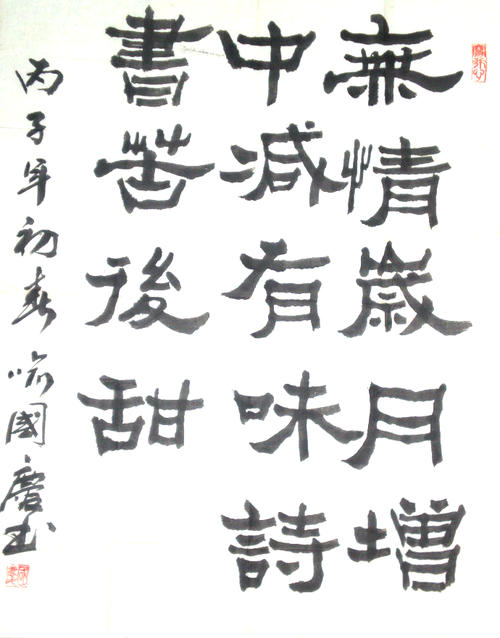 無情歲月增
中減有味詩
書苦後甜
丙子年初春喻國慶书